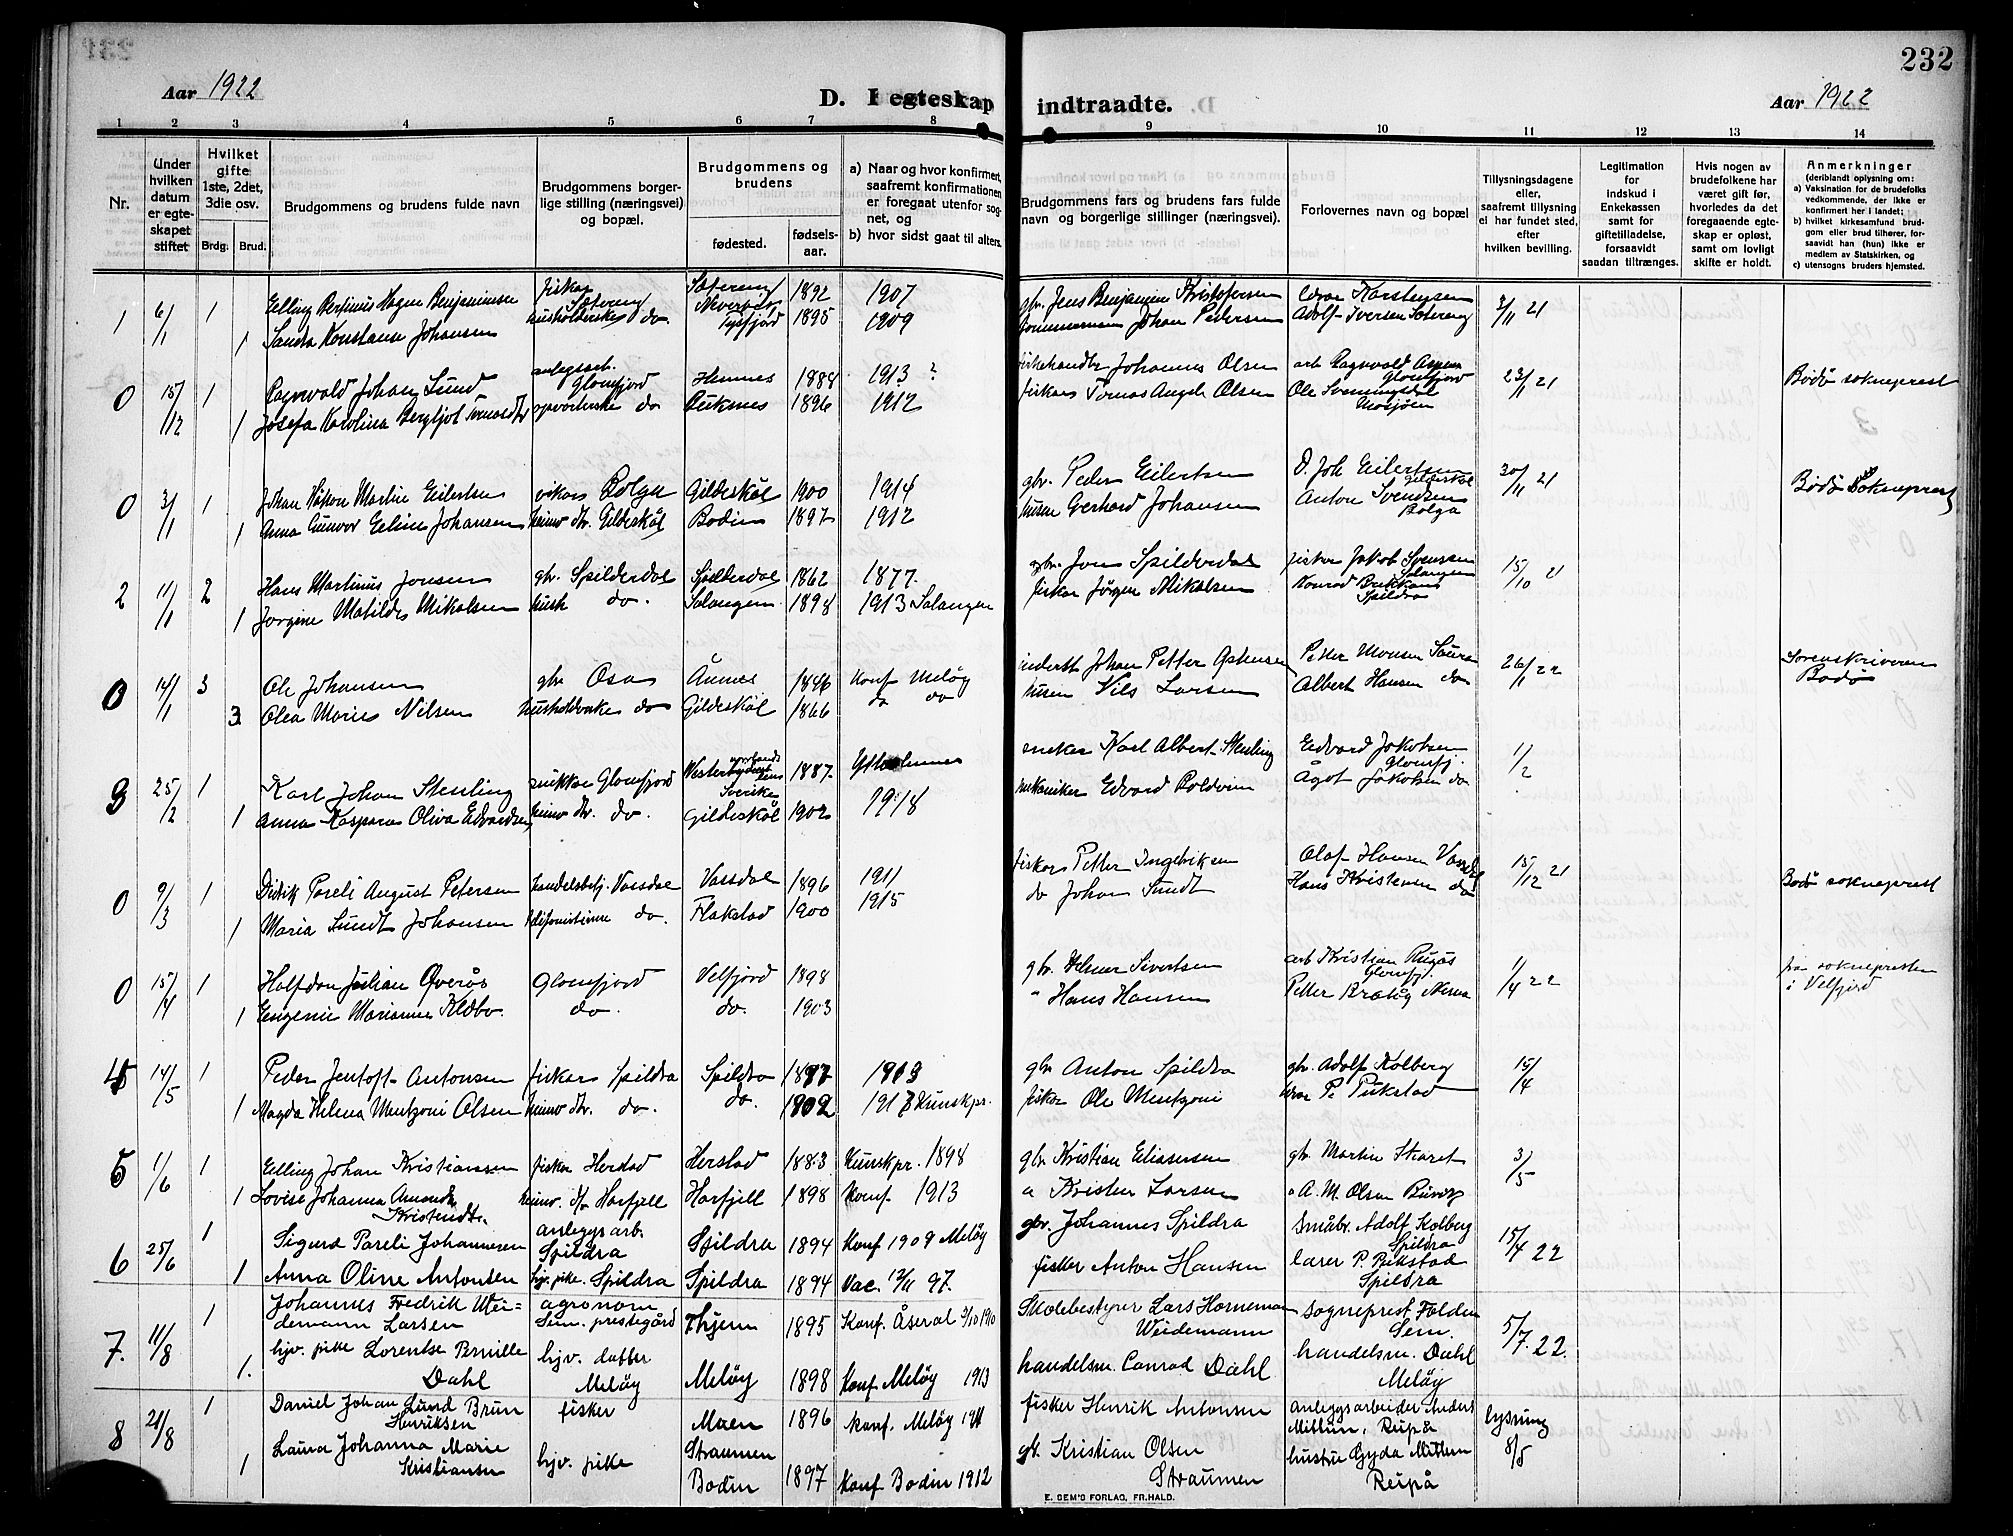 232
Aar 1922
D. I egteskap indtraadte.
Aar 1922
1 2 3 4 5 6 7 8 9 10 11 12 13 14
Nr.
Under hvilken datum er egteskapet stiftet
Hvilket gifte 1ste, 2det, 3die osv.
Brdg. Brud.
Brudgommens og brudens fulde navn
Brudgommens borgerlige stilling (næringsvei) og bopæl.
Brudgommens og brudens
fødested.
fødselsaar.
a) Naar og hvor konfirmert, saafremt konfirmationen er foregaat utenfor sognet, og
b) hvor sidst gaat til alters.
Brudgommens fars og brudens fars fulde navn og borgerlige stillinger (næringsvei).
Forlovernes navn og bopæl
Tillysningsdagene eller, saafremt tillysning ei har fundet sted, efter hvilken bevilling.
Legitimation for indskud i Enkekassen samt for giftetilladelse, forsaavidt saadan tiltrænges.
Hvis nogen av brudefolkene har været gift før, hvorledes da det foregaaende egteskap er opløst, samt om lovligt skifte er holdt.
Anmerkninger (deriblandt oplysning om:
a) Vaksination for de brudefolks vedkommende, der ikke er konfirmert her i landet;
b) hvilket kirkesamfund brudgom eller brud tilhører, forsaavidt han (hun) ikke er medlem av Statskirken, og
c) utensogns bruders hjemsted.
1 6/1 1 Elling Bertinus Hagen Benjaminsen fisker Sætereng Sætereng 1892 1907 gbr. Jens Benjamin Kristofersen Edvar Karstensen 3/11 21
1 Sandra Konstanse Johansen husholderske do. Tysfjord 1895 1909 Johan Pedersen Adolf Iversen Sætereng
0 15/12 1 Ragnvald Johan Lund anlegsarb. Glomfjord Hemnes 1888 1913 ? fiskehandler Johannes Olsen arb Ragnvald Aspen Glomfjord 23/11 21 Bodø sokneprest
1 Josefa Karolina Bergljot Tomasdtr opvarterske do 1896 1912 fisker Tomas Angel Olsen Ole Svenningdal Mosjøen
0 3/1 1 Johan Håkon Martin Eilertsen Bolga Gildeskål 1900 1914 gbr. Peder Eilertsen O. Joh Eilertsen Gildeskål 30/11 21 Bodø Sokneprest
1 Anna Gunvor Eline Johansen heimv dtr. Gildeskål Bodin 1897 1912 husm Gerhard Johansen Anton Svendsen Bolga
2 11/1 2 Hans Martinus Jonsen gbr. Spilderdal Spilderdal 1862 1877. gbr. Jon Spilderdal fisker Jakob Salangen 15/10 21
1 Jorgine Matilde Mikalsen hush do. Salangen 1898 1913 Salangen fisker Jørgen Mikalsen Konrad Spildra
0 14/1 3 Ole Johansen gbr Osa Ånnes 1846 Konf Meløy inderst Johan Petter Petter Monsen 26/1 22 Sorenskriveren Bodø
3 Olea Marie Nilsen husholderske do Gildeskål 1866 do do husm Nils Larsen Albert Hansen do
3 25/2 1 Karl Johan Stenling snikker Glomfjord Sverike 1887. snekker Karl Albert Stenling Edvard Jakobsen Glomfj. 1/2
1 Anna Kaspara Oliva Edvardsen heimv dtr. do. Gildeskål 1902 1918 mekaniker Edvard Boldvin Ågot Jakobsen do
0 9/3 1 Didrik Pareli August Petersen handelsbetj. Vassdal Vassdal 1896 1911 fisker Petter Ingebriksen Olaf Hansen Vassdal 15/12 21 Bodø sokneprest
1 Maria Sundt Johansen do. Flakstad 1900 1915 do Johan Sundt Hans Kristensen do
0 15/4 1 Halfdan Julian Øverås Glomfjord Velfjord 1898 gbr. Helmer Sivertsen arb Kristian Glomfj. 1/4 22 fra soknepresten i Velfjord
1 Eugenie Marianne Klæbo. do. do. 1903 " Hans Hansen Petter
4 14/5 1 Peder Jentoft Antonsen fisker Spildra Spildra 1897 1913 gbr Anton Spildra gbr. Adolf Kolberg 15/4
1 Magda Helena Mentzoni Olsen heimv dtr. do. do. 1902 1917 Kunskpr. fisker Ole Mentzoni lærer P. Rikstad
5 1/6 1 Elling Johan Kristiansen fisker Herstad Herstad 1883 Kunskpr. 1898 gbr Kristian Eliasersen gbr. Martin Skaret 3/5
1 Lovise Johanna Amanda Kristensdtr. heimv. dtr Harfjell Harfjell 1898 Konf 1913 " Kristen Larsen " A. M. Olsen
6 25/6 1 Sigurd Pareli Johannesen anleggsarb. Spildra Spildra 1894 Konf 1909 Meløy gbr. Johannes Spildra Småbr. Adolf Kolberg Spildra 15/4 22
1 Anna Oline Antonsen hjv. pike. Spildra Spildra 1894 Vac. 12/11 97. fisker Anton Hansen lærer P. Rikstad Spildra
7. 11/8 1 Johannes Fredrik Weidemann Larsen agronom Sem. prestegård 1895 Konf. Åseral 2/10 1910 Skolebestyrer Lars Horneman Weidemann sogneprest Falden Sem. 5/7. 22.
1. hjv. pike Lorentse Pernille Dahl hjv. datter Meløy Meløy 1898 Konf. Meløy 1913 handelsm. Conrad Dahl handelsm. Dahl Meløy
8 21/8 1 Daniel Johan Lund Brun Henriksen fisker Maen 1896 Konf. Meløy 1911 fisker Henrik Antonsen anleggsarbeider Anders Mittun, Reipå lysning 8/5
1 Laura Johanna Marie Kristiansen hjv. pike Straumen Bodin 1897 Konf Bodin 1912 gbr. Kristian Olsen Straumen hustru Gyda Mittun Reipå
E. SEM'S FORLAG, FR.HALD.